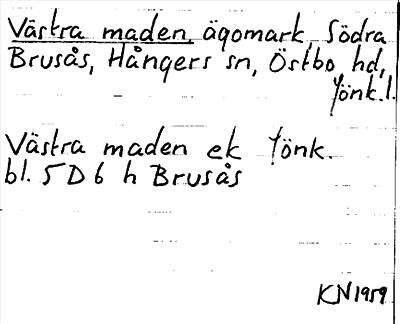 Västra maden, ägomark, Södra
Brusås, Hångers sn, Östbo hd,
Jönk.l.
Västra maden ek Jönk.
bl. 5 D 6 h Brusås
KN 1959